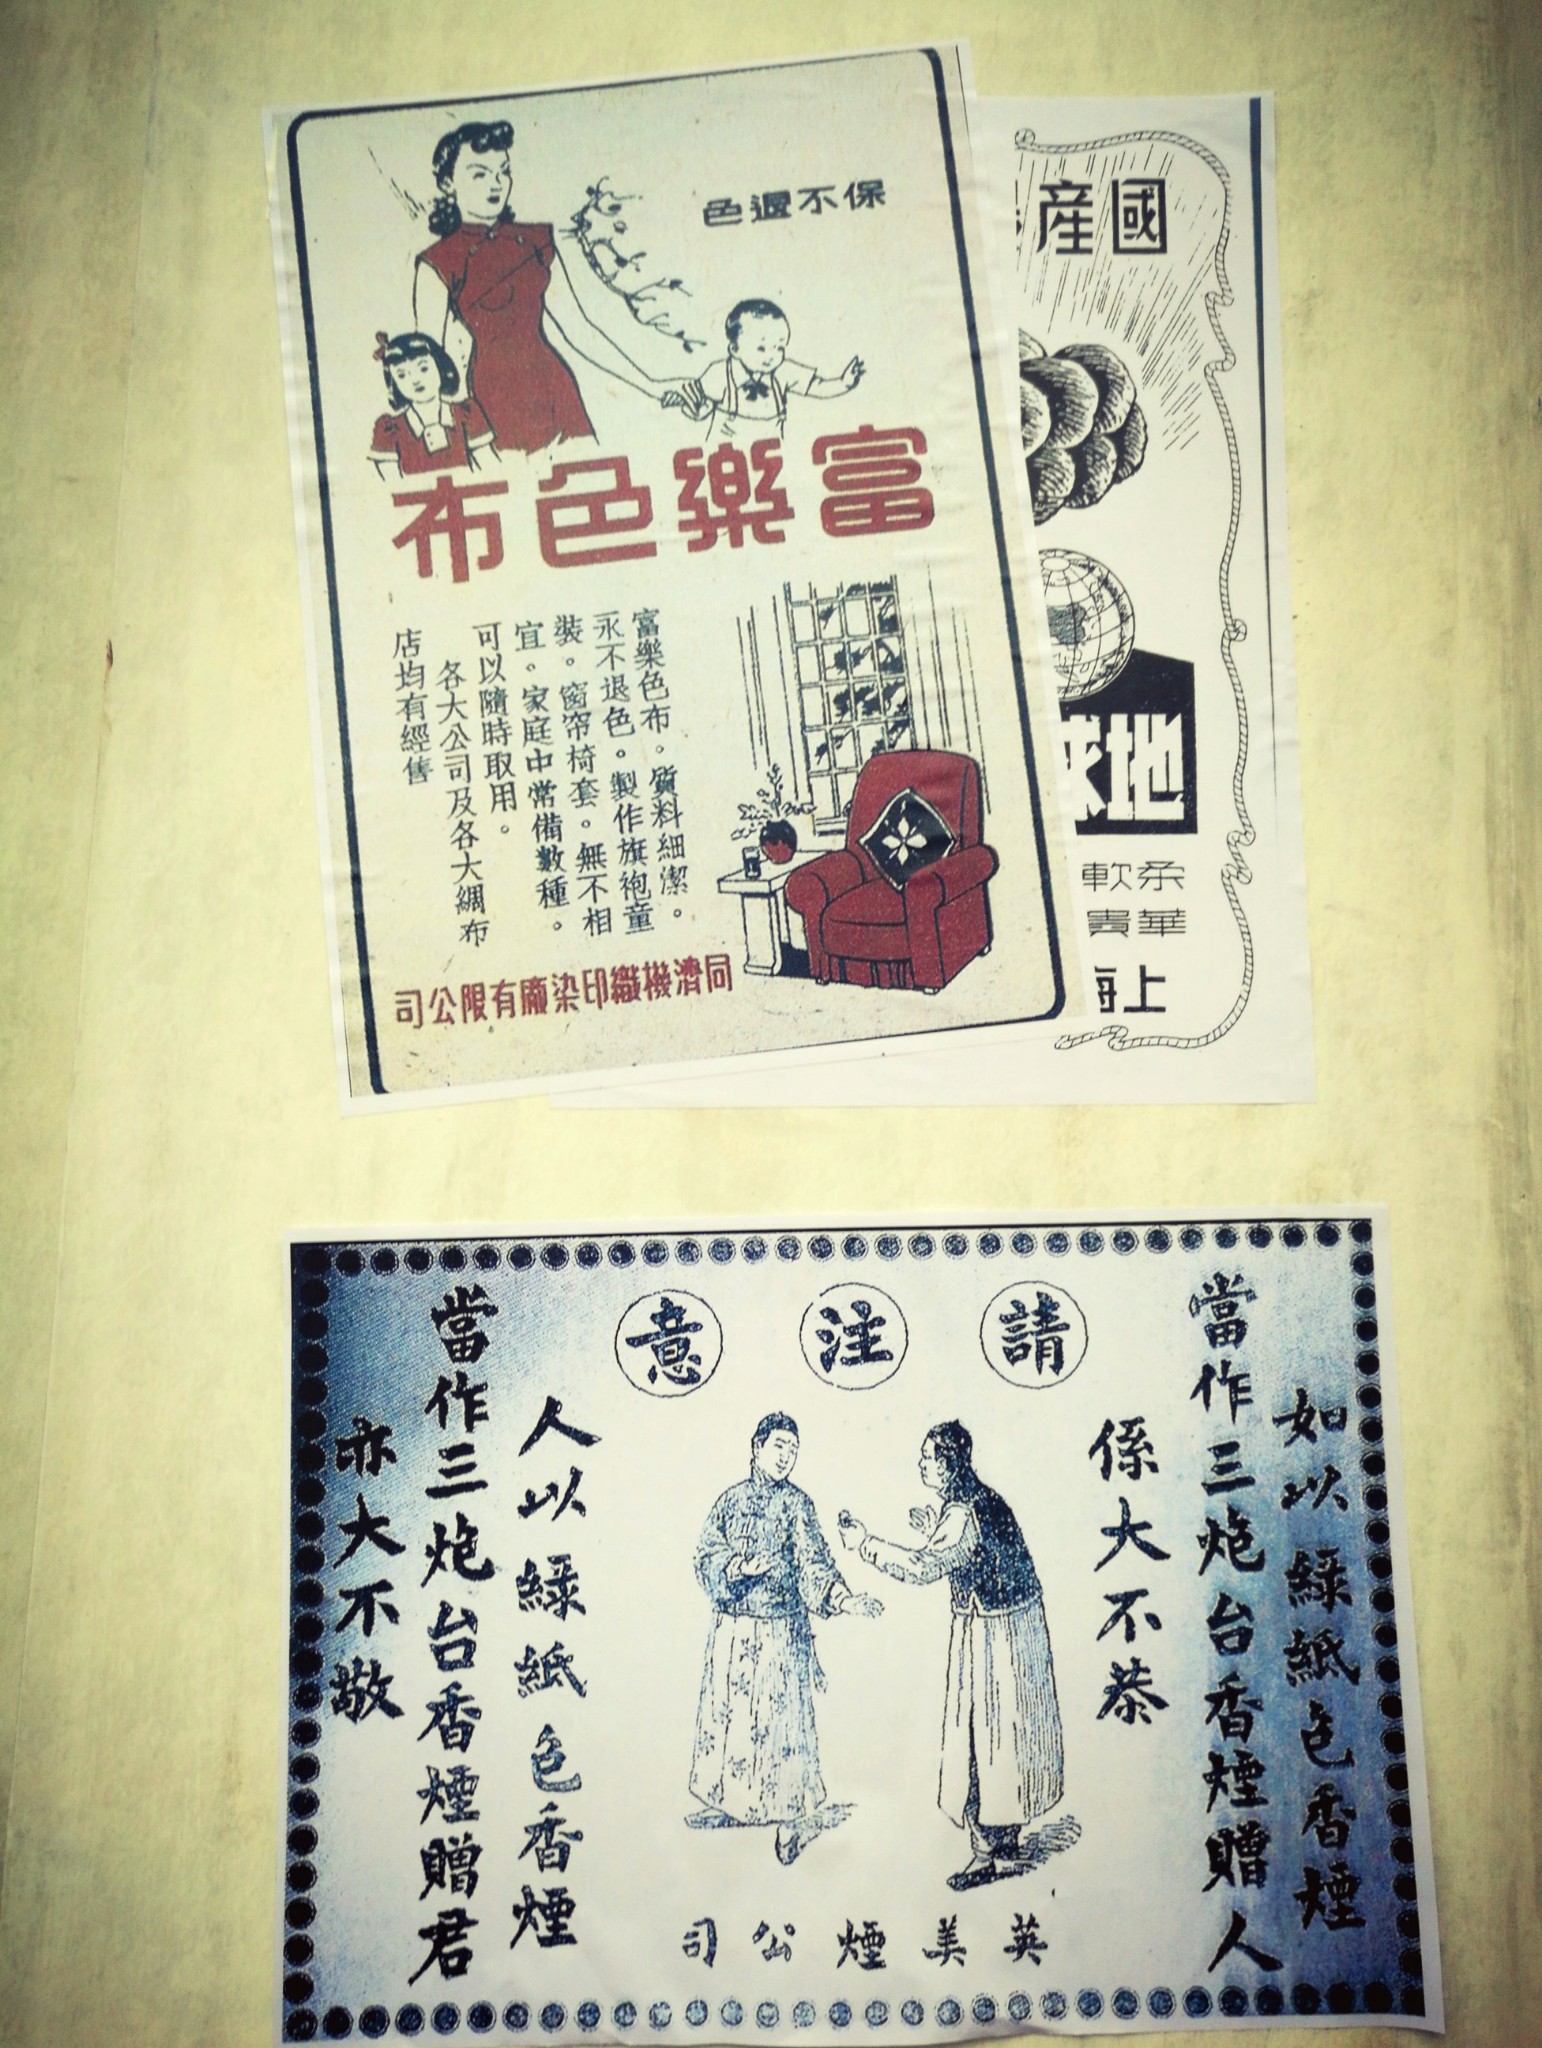 保不退色
富樂色布
富樂色布。質料細潔。
永不退色。製作旗袍童
裝。窗帘椅套。無不相
宜。家庭中常備數種。
可以隨時取用。
各大公司及各大綢布
店均有經售
同濟機織印染廠有限公司
國產
地球
柔軟
華貴
上海
請注意
如以綠紙色香煙
當作三炮台香煙贈人
係大不恭
人以綠紙色香煙
當作三炮台香煙贈君
亦大不敬
英美煙公司